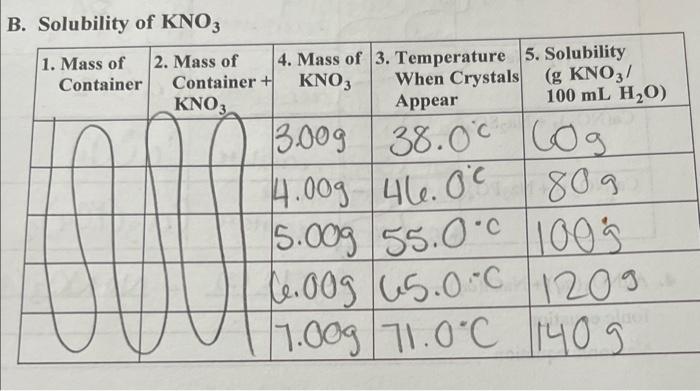 B. Solubility of KNO₃
1. Mass of Container 2. Mass of Container + KNO₃ 4. Mass of KNO₃ 3. Temperature When Crystals Appear 5. Solubility (g KNO₃/ 100 mL H₂O)
3.00g 38.0°C 60g
4.00g 46.0°C 80g
5.00g 55.0°C 100g
6.00g 65.0°C 120g
7.00g 71.0°C 140g